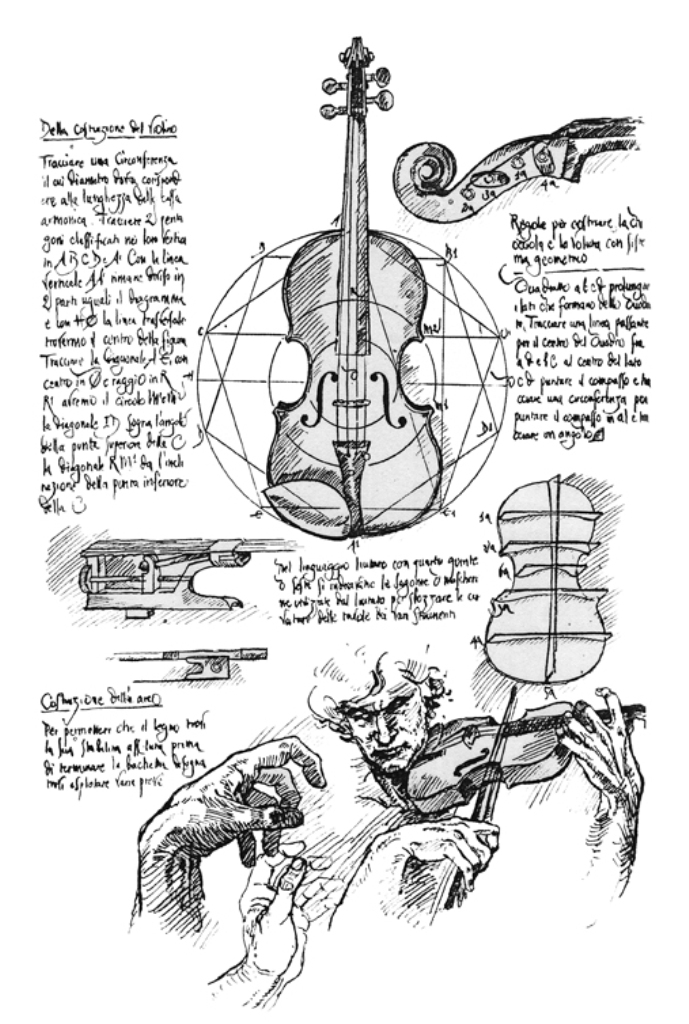 Della costruzione del Violino
Tracciare una Circonferenza
il cui diametro dovrà corispond
ere alla lunghezza della cassa
armonica. Tracciare 2 penta
goni classificati nei loro vertici
in A B C D E A1 Con la linea
verticale A A1 rimane diviso in
2 parti uguali il diagramma
e con la linea trasversale
troveremo il centro della figura
Tracciare la diagonale A E, con
centro in O e raggio in R
R1 avremo il circolo
la diagonale ID segna l'angolo
della punta superiore della C
la diagonale R M1 da l'incli
nazione della punta inferiore
della C
Regole per costruire la Chi
occiola e la Voluta con siste
ma geometrico
Quadrato a b c d prolungare
i lati che formano detto Quadra
to, Tracciare una linea passante
per il centro del Quadro fra
a d e b C al centro del lato
c d puntare il compasso e tra
cciare una circonferenza poi
puntare il compasso in a l e tra
cciare un angolo
A
B
B1
C
M2
M1
D1
E
E1
A1
2a
3a
4a
nel linguaggio liutaio con quarte quinte
o seste si indicano le sagome o mascheri
ne utilizzate dal liutaio per sbozzare le cur
vature delle tavole dei vari strumenti
4a
Costruzione della arco
Per permettere che il legno trovi
la sua stabilità assoluta prima
di terminare la bacchetta bisogna